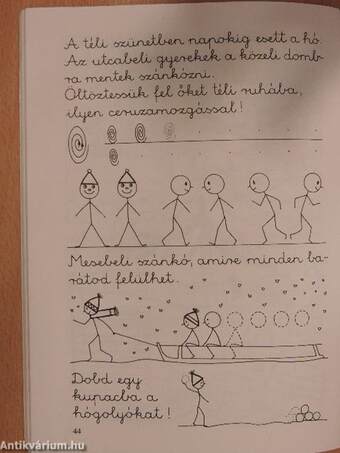 A téli szünetben napokig esett a hó.
Az utcabeli gyerekek a közeli domb-
ra mentek szánkózni.
Öltöztessük fel őket téli ruhába,
ilyen ceruzamozgással!
Mesebeli szánkó, amire minden ba-
rátod felülhet.
Dobd egy
kupacba a
hógolyókat!
44
Antikvárium.hu